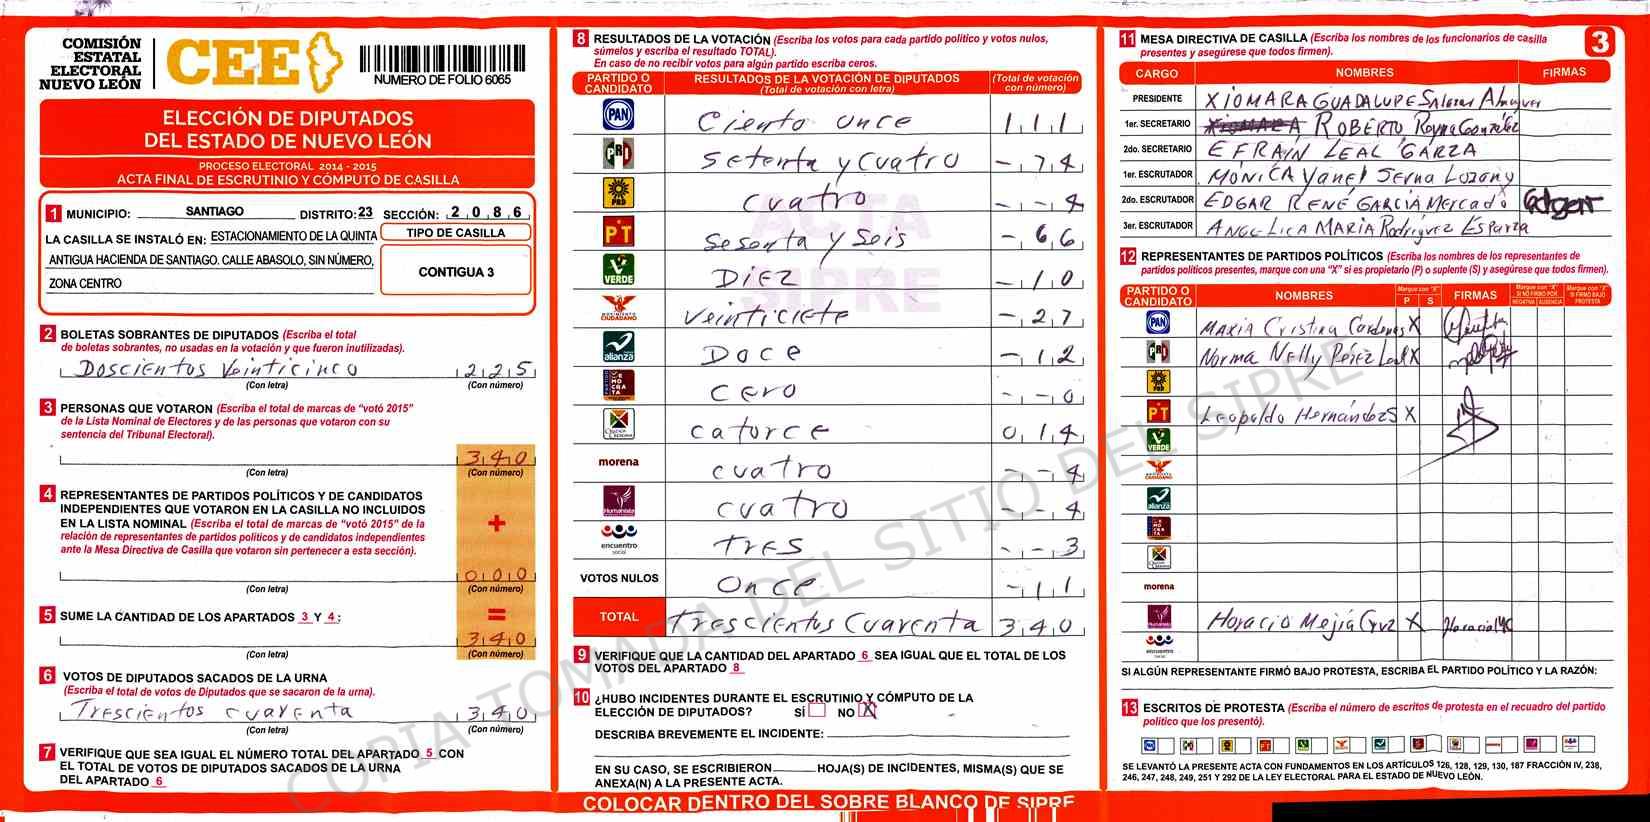 COMISIÓN
ESTATAL
ELECTORAL
NUEVO LEÓN
CEE
NUMERO DE FOLIO 6065
ELECCIÓN DE DIPUTADOS
DEL ESTADO DE NUEVO LEÓN
PROCESO ELECTORAL 2014 - 2015
ACTA FINAL DE ESCRUTINIO Y CÓMPUTO DE CASILLA
1 MUNICIPIO: SANTIAGO DISTRITO: 23 SECCIÓN: 2 0 8 6
LA CASILLA SE INSTALÓ EN: ESTACIONAMIENTO DE LA QUINTA
ANTIGUA HACIENDA DE SANTIAGO. CALLE ABASOLO, SIN NÚMERO,
ZONA CENTRO
TIPO DE CASILLA
CONTIGUA 3
2 BOLETAS SOBRANTES DE DIPUTADOS (Escriba el total
de boletas sobrantes, no usadas en la votación y que fueron inutilizadas).
Doscientos Veinticinco 2 2 5
(Con letra) (Con número)
3 PERSONAS QUE VOTARON (Escriba el total de marcas de “votó 2015”
de la Lista Nominal de Electores y de las personas que votaron con su
sentencia del Tribunal Electoral).
3 4 0
(Con letra) (Con número)
4 REPRESENTANTES DE PARTIDOS POLÍTICOS Y DE CANDIDATOS
INDEPENDIENTES QUE VOTARON EN LA CASILLA NO INCLUIDOS
EN LA LISTA NOMINAL (Escriba el total de marcas de “votó 2015” de la
relación de representantes de partidos políticos y de candidatos independientes
ante la Mesa Directiva de Casilla que votaron sin pertenecer a esta sección).
+
0 0 0
(Con letra) (Con número)
5 SUME LA CANTIDAD DE LOS APARTADOS 3 Y 4:
=
3 4 0
(Con letra) (Con número)
6 VOTOS DE DIPUTADOS SACADOS DE LA URNA
(Escriba el total de votos de Diputados que se sacaron de la urna).
Trescientos cuarenta 3 4 0
(Con letra) (Con número)
7 VERIFIQUE QUE SEA IGUAL EL NÚMERO TOTAL DEL APARTADO 5 CON
EL TOTAL DE VOTOS DE DIPUTADOS SACADOS DE LA URNA
DEL APARTADO 6
8 RESULTADOS DE LA VOTACIÓN (Escriba los votos para cada partido político y votos nulos,
súmelos y escriba el resultado TOTAL).
En caso de no recibir votos para algún partido escriba ceros.
PARTIDO O CANDIDATO RESULTADOS DE LA VOTACIÓN DE DIPUTADOS (Total de votación con letra) (Total de votación con número)
PAN Ciento once 1 1 1
PRI Setenta y cuatro - 7 4
PRD cuatro - - 4
PT Sesenta y Seis - 6 6
VERDE DIEZ - 1 0
MOVIMIENTO CIUDADANO veinticiete - 2 7
alianza Doce - 1 2
cero - - 0
catorce 0 1 4
morena cuatro - - 4
Humanista cuatro - - 4
encuentro social tres - - 3
VOTOS NULOS once - 1 1
TOTAL trescientos cuarenta 3 4 0
ACTA
SIPRE
9 VERIFIQUE QUE LA CANTIDAD DEL APARTADO 6 SEA IGUAL QUE EL TOTAL DE LOS
VOTOS DEL APARTADO 8
10 ¿HUBO INCIDENTES DURANTE EL ESCRUTINIO Y CÓMPUTO DE LA
ELECCIÓN DE DIPUTADOS? SÍ NO X
DESCRIBA BREVEMENTE EL INCIDENTE:
EN SU CASO, SE ESCRIBIERON HOJA(S) DE INCIDENTES, MISMA(S) QUE SE
ANEXA(N) A LA PRESENTE ACTA.
COLOCAR DENTRO DEL SOBRE BLANCO DE SIPRE
11 MESA DIRECTIVA DE CASILLA (Escriba los nombres de los funcionarios de casilla
presentes y asegúrese que todos firmen).
3
CARGO NOMBRES FIRMAS
PRESIDENTE XIOMARA GUADALUPE Salazar
1er. SECRETARIO ROBERTO Reyna González
2do. SECRETARIO EFRAÍN LEAL GARZA
1er. ESCRUTADOR MÓNICA Yanel Serna Lozano
2do. ESCRUTADOR EDGAR RENÉ GARCÍA Mercado Edgar
3er. ESCRUTADOR ANGELICA MARIA Rodríguez Esparza
12 REPRESENTANTES DE PARTIDOS POLÍTICOS (Escriba los nombres de los representantes de
partidos políticos presentes, marque con una “X” si es propietario (P) o suplente (S) y asegúrese que todos firmen).
PARTIDO O CANDIDATO NOMBRES Marque con “X” P S FIRMAS Marque con “X” SI NO FIRMÓ POR: NEGATIVA AUSENCIA Marque con “X” SI FIRMÓ BAJO PROTESTA
PAN Maria Cristina Cardenas X
PRI Norma Nelly Pérez Leal X
PRD
PT Leopoldo Hernández S X
VERDE
MOVIMIENTO CIUDADANO
alianza
morena
Humanista Horacio Mejía Cruz X
encuentro social
SI ALGÚN REPRESENTANTE FIRMÓ BAJO PROTESTA, ESCRIBA EL PARTIDO POLÍTICO Y LA RAZÓN:
13 ESCRITOS DE PROTESTA (Escriba el número de escritos de protesta en el recuadro del partido
político que los presentó).
SE LEVANTÓ LA PRESENTE ACTA CON FUNDAMENTOS EN LOS ARTÍCULOS 126, 128, 129, 130, 187 FRACCIÓN IV, 238,
246, 247, 248, 249, 251 Y 292 DE LA LEY ELECTORAL PARA EL ESTADO DE NUEVO LEÓN.
COPIA TOMADA DEL SITIO DEL SIPRE